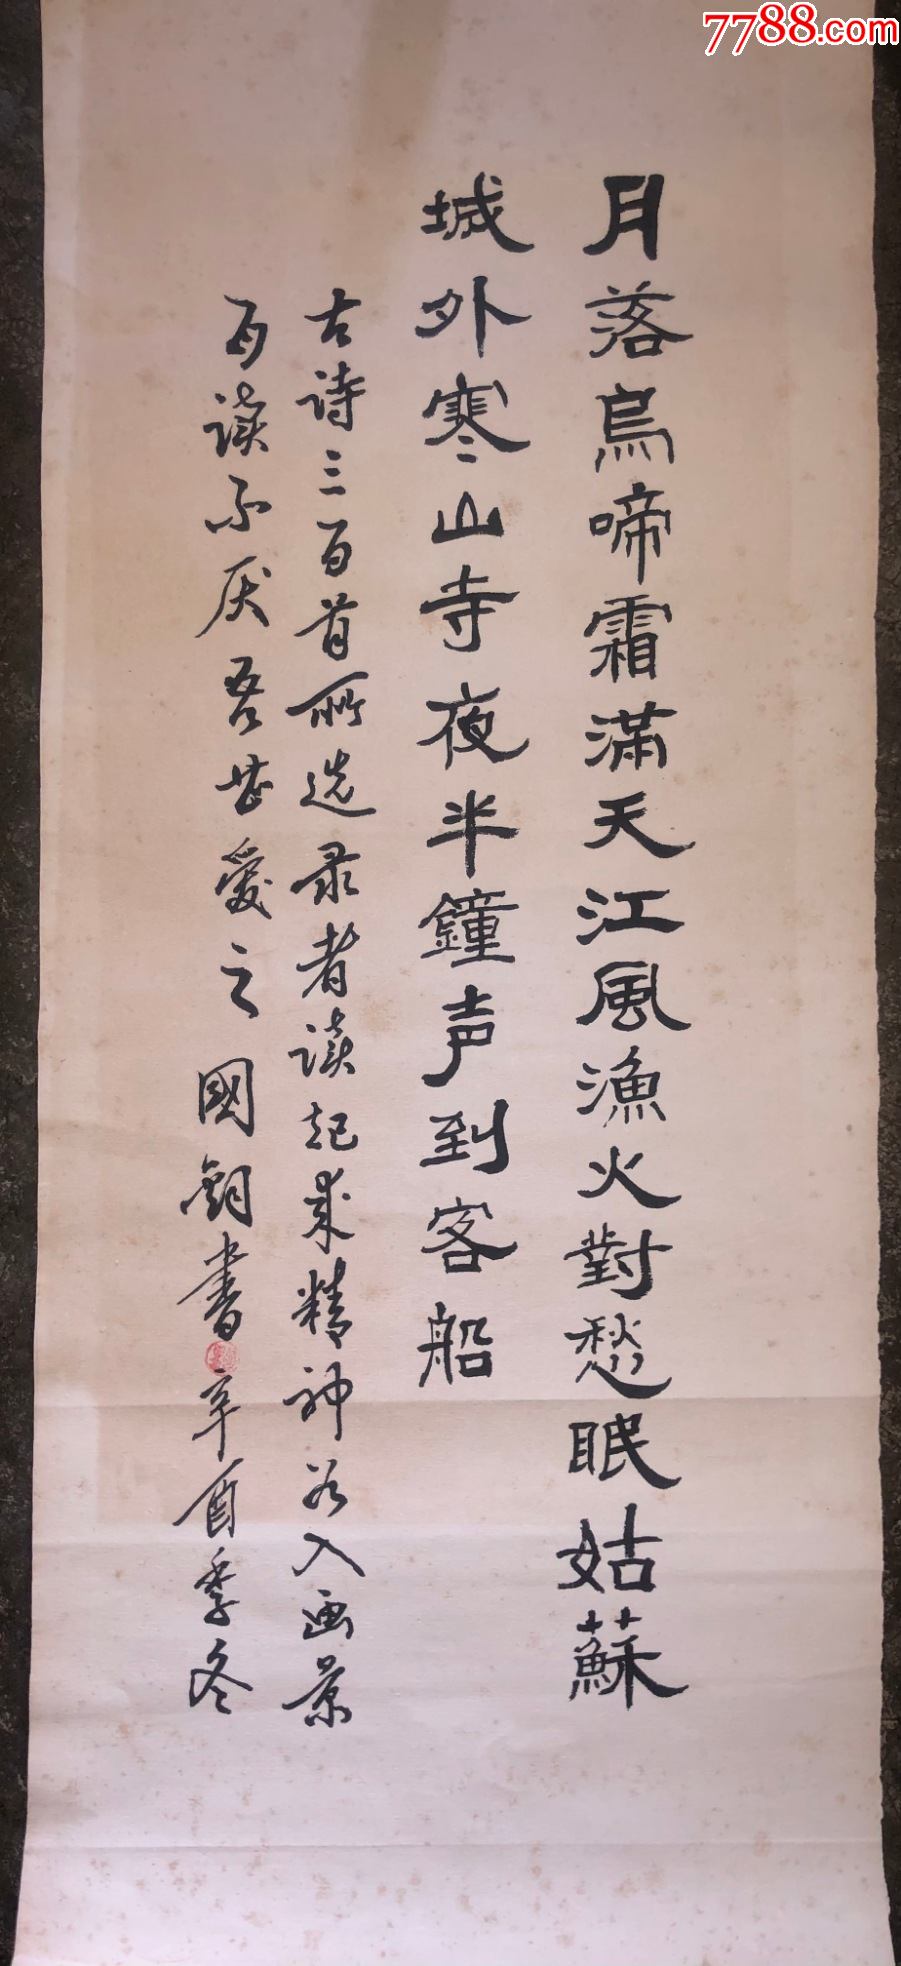 7788.com
月落烏啼霜滿天江風漁火對愁眠姑蘇
城外寒山寺夜半鐘声到客船
古诗三百首所选录者读起来精神若入画景
百读不厌吾甚爱之國钧書辛酉季冬